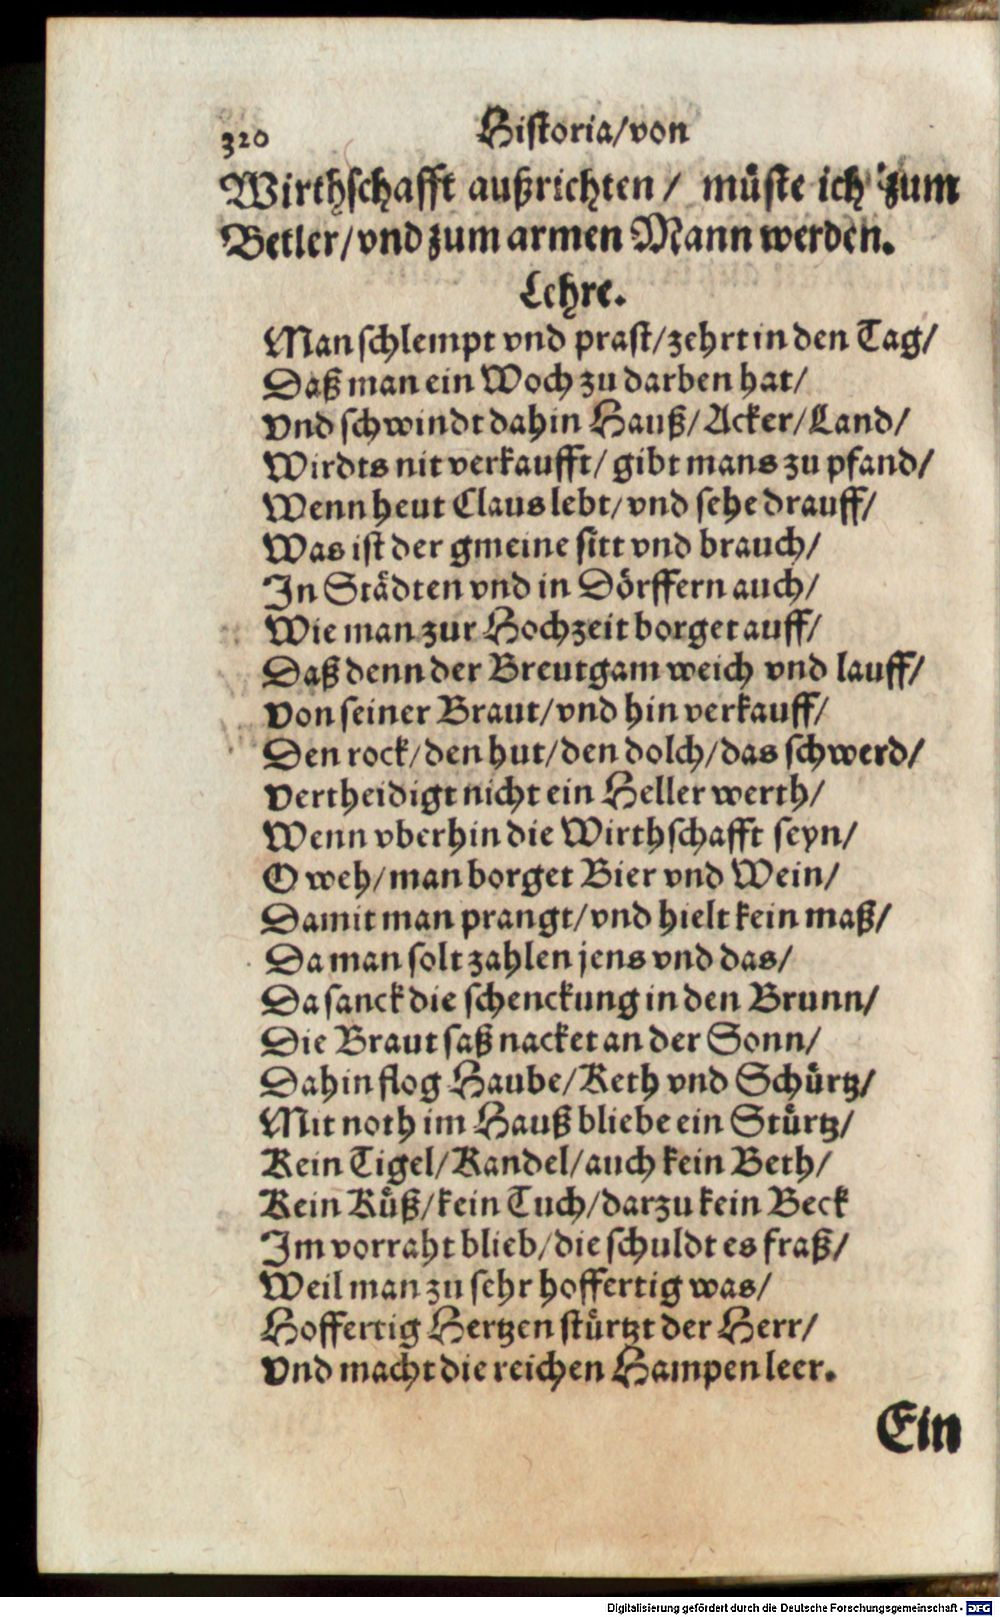 320 Historia/von
Wirthschafft außrichten / müste ich zum
Betler/vnd zum armen Mann werden.
Lehre.
Man schlempt vnd prast/zehrt in den Tag/
Daß man ein Woch zu darben hat/
Vnd schwindt dahin Hauß/Acker/Land/
Wirdts nit verkaufft/gibt mans zu pfand/
Wenn heut Claus lebt/vnd sehe drauff/
Was ist der gmeine sitt vnd brauch/
In Städten vnd in Dörffern auch/
Wie man zur Hochzeit borget auff/
Daß denn der Breutgam weich vnd lauff/
Von seiner Braut/vnd hin verkauff/
Den rock/den hut/den dolch/das schwerd/
Vertheidigt nicht ein Heller werth/
Wenn vberhin die Wirthschafft seyn/
O weh/man borget Bier vnd Wein/
Damit man prangt/vnd hielt kein maß/
Da man solt zahlen jens vnd das/
Da sanck die schenckung in den Brunn/
Die Braut saß nacket an der Sonn/
Dahin flog Haube/Keth vnd Schürtz/
Mit noth im Hauß bliebe ein Stürtz/
Kein Tigel/Kandel/auch kein Beth/
Kein Küß/kein Tuch/darzu kein Beck
Im vorraht blieb/die schuldt es fraß/
Weil man zu sehr hoffertig was/
Hoffertig Hertzen stürtzt der Herr/
Vnd macht die reichen Hampen leer.
Ein
Digitalisierung gefördert durch die Deutsche Forschungsgemeinschaft - DFG